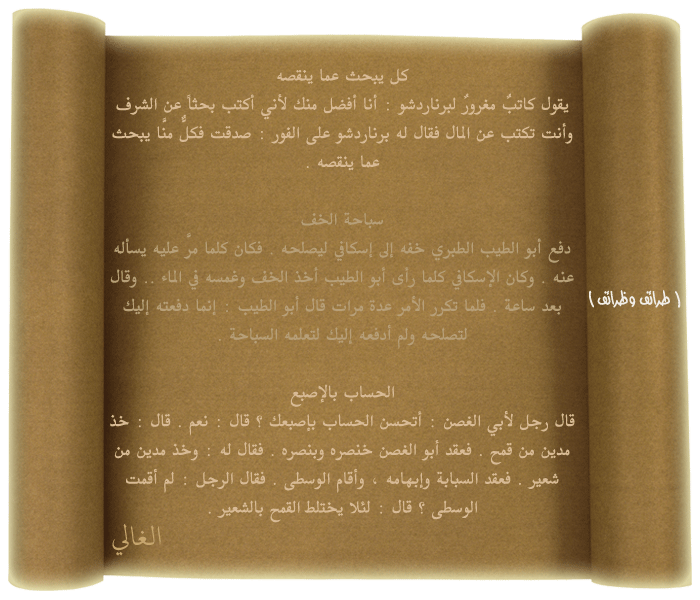 كل يبحث عما ينقصه
يقول كاتبٌ مغرورٌ لبرناردشو : أنا أفضل منك لأني أكتب بحثاً عن الشرف
وأنت تكتب عن المال فقال له برناردشو على الفور : صدقت فكلٌّ منَّا يبحث
عما ينقصه .
سباحة الخف
دفع أبو الطيب الطبري خفه إلى إسكافي ليصلحه . فكان كلما مرَّ عليه يسأله
عنه . وكان الإسكافي كلما رأى أبو الطيب أخذ الخف وغمسه في الماء .. وقال
بعد ساعة . فلما تكرر الأمر عدة مرات قال أبو الطيب : إنما دفعته إليك
لتصلحه ولم أدفعه إليك لتعلمه السباحة .
( طرائف وظرائف )
الحساب بالإصبع
قال رجل لأبي الغصن : أتحسن الحساب بإصبعك ؟ قال : نعم . قال : خذ
مدين من قمح . فعقد أبو الغصن خنصره وبنصره . فقال له : وخذ مدين من
شعير . فعقد السبابة وإبهامه ، وأقام الوسطى . فقال الرجل : لم أقمت
الوسطى ؟ قال : لئلا يختلط القمح بالشعير .
الغالي